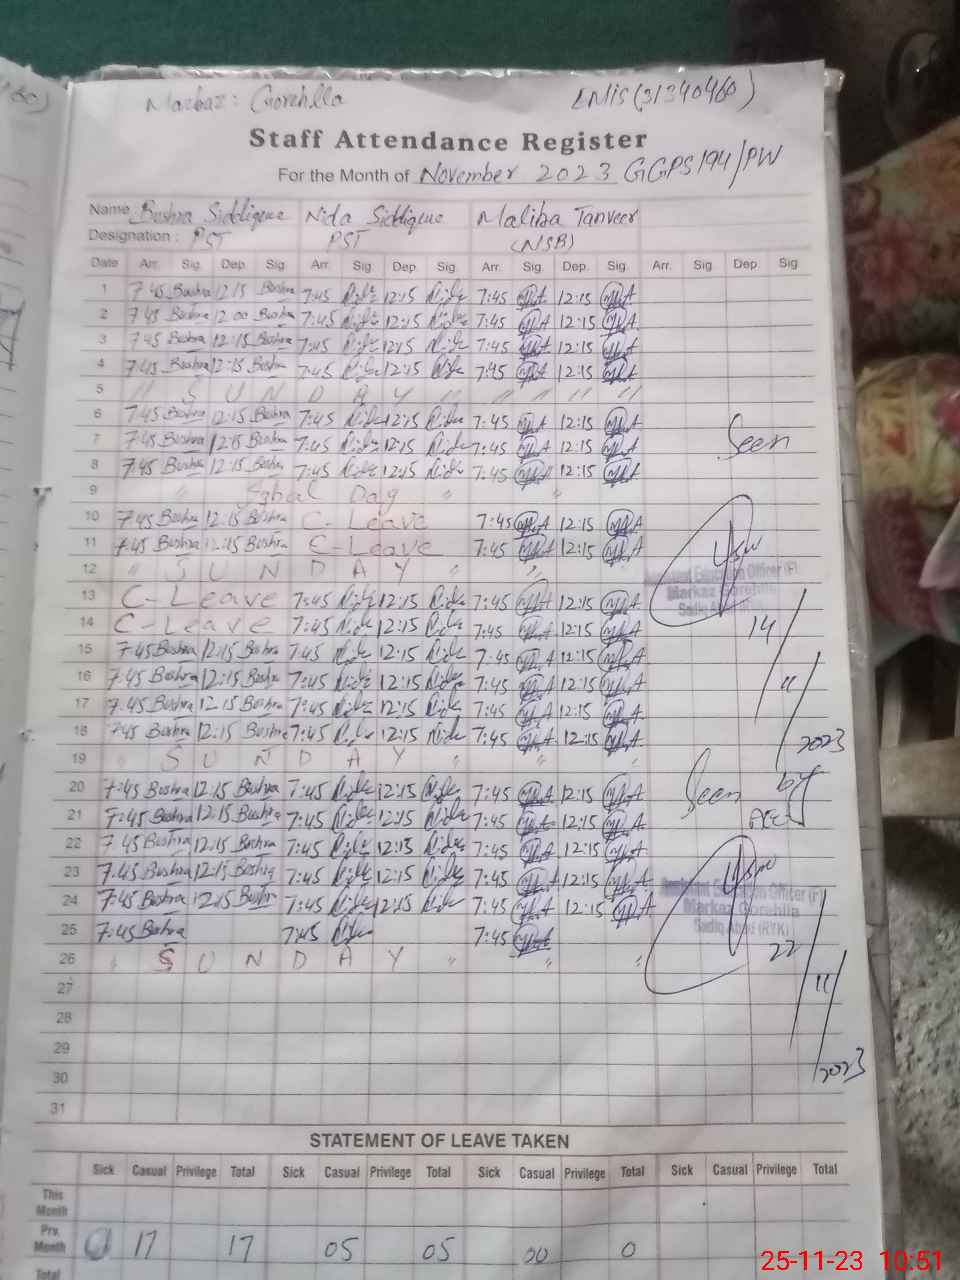 Markaz: Gorehlla EMIS (31340460)
Staff Attendance Register
For the Month of November 2023 GGPS 194/PW
Name: Bushra Siddique Nida Siddique Maliba Tanveer
Designation: PST PST (NSB)
Date Arr. Sig. Dep. Sig Arr. Sig. Dep. Sig. Arr. Sig. Dep. Sig. Arr. Sig Dep. Sig
1 7:45 Bushra 12:15 Bushra 7:45 Nida 12:15 Nida 7:45 12:15
2 7:45 Bushra 12:00 Bushra 7:45 Nida 12:15 Nida 7:45 12:15
3 7:45 Bushra 12:15 Bushra 7:45 Nida 12:15 Nida 7:45 12:15
4 7:45 Bushra 12:15 Bushra 7:45 Nida 12:15 Nida 7:45 12:15
5 " S U N D A Y " " " " "
6 7:45 Bushra 12:15 Bushra 7:45 Nida 12:15 Nida 7:45 12:15
7 7:45 Bushra 12:15 Bushra 7:45 Nida 12:15 Nida 7:45 12:15 Seen
8 7:45 Bushra 12:15 Bushra 7:45 Nida 12:15 Nida 7:45 12:15
9 " Iqbal Day " "
10 7:45 Bushra 12:15 Bushra C-Leave 7:45 12:15
11 7:45 Bushra 12:15 Bushra C-Leave 7:45 12:15
12 " S U N D A Y " "
Assistant Education Officer (F)
Markaz Gorehlla
13 C-Leave 7:45 Nida 12:15 Nida 7:45 12:15
14 C-Leave 7:45 Nida 12:15 Nida 7:45 12:15 14/11/2023
15 7:45 Bushra 12:15 Bushra 7:45 Nida 12:15 Nida 7:45 12:15
16 7:45 Bushra 12:15 Bushra 7:45 Nida 12:15 Nida 7:45 12:15
17 7:45 Bushra 12:15 Bushra 7:45 Nida 12:15 Nida 7:45 12:15
18 7:45 Bushra 12:15 Bushra 7:45 Nida 12:15 Nida 7:45 12:15
19 " S U N D A Y " " "
20 7:45 Bushra 12:15 Bushra 7:45 Nida 12:15 Nida 7:45 12:15 Seen by
21 7:45 Bushra 12:15 Bushra 7:45 Nida 12:15 Nida 7:45 12:15 AEO
22 7:45 Bushra 12:15 Bushra 7:45 Nida 12:15 Nida 7:45 12:15
23 7:45 Bushra 12:15 Bushra 7:45 Nida 12:15 Nida 7:45 12:15
24 7:45 Bushra 12:15 Bushra 7:45 Nida 12:15 Nida 7:45 12:15
Assistant Education Officer (F)
Markaz Gorehlla
Sadiq Abad (RYK)
25 7:45 Bushra 7:45 Nida 7:45
26 " S U N D A Y " " " 22/11/2023
27
28
29
30
31
STATEMENT OF LEAVE TAKEN
Sick Casual Privilege Total Sick Casual Privilege Total Sick Casual Privilege Total Sick Casual Privilege Total
This Month
Prv. Month 0 17 17 05 05 00 0
Total
25-11-23 10:51